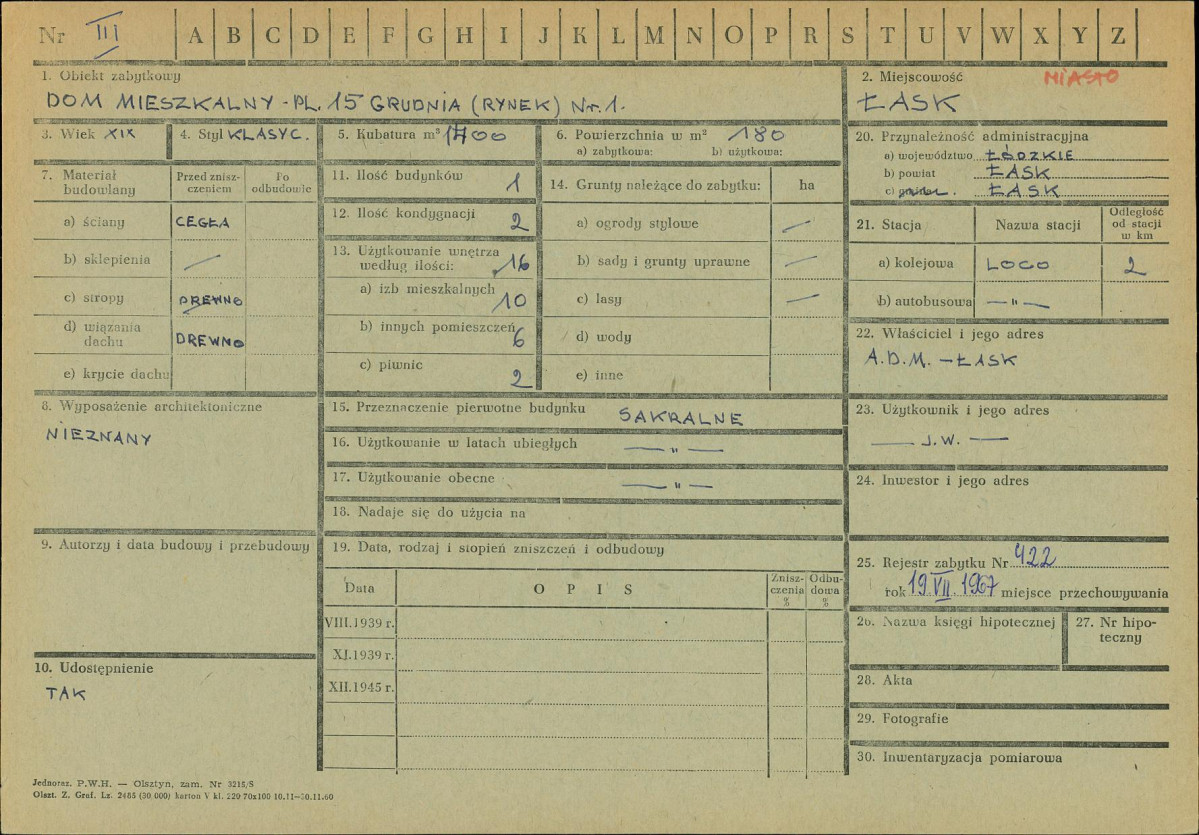 Nr III A B C D E F G H I J K L M N O P R S T U V W X Y Z
1. Obiekt zabytkowy
DOM MIESZKALNY - PL. 15 GRUDNIA (RYNEK) Nr. 1.
2. Miejscowość MIASTO
ŁASK
3. Wiek XIX
4. Styl KLASYC.
5. Kubatura m³ 1700
6. Powierzchnia w m² 180
a) zabytkowa: b) użytkowa:
20. Przynależność administracyjna
a) województwo ŁÓDZKIE
b) powiat ŁASK
c) ŁASK
7. Materiał budowlany
Przed zniszczeniem
Po odbudowie
a) ściany CEGŁA
b) sklepienia —
c) stropy DREWNO
d) wiązania dachu DREWNO
e) krycie dachu
11. Ilość budynków 1
12. Ilość kondygnacji 2
13. Użytkowanie wnętrza
według ilości: 16
a) izb mieszkalnych 10
b) innych pomieszczeń 6
c) piwnic 2
14. Grunty należące do zabytku: ha
a) ogrody stylowe —
b) sady i grunty uprawne —
c) lasy —
d) wody
e) inne
21. Stacja
Nazwa stacji
Odległość od stacji w km
a) kolejowa LOCO 2
b) autobusowa — " —
22. Właściciel i jego adres
A.D.M. - ŁASK
8. Wyposażenie architektoniczne
NIEZNANY
15. Przeznaczenie pierwotne budynku SAKRALNE
16. Użytkowanie w latach ubiegłych — " —
17. Użytkowanie obecne — " —
18. Nadaje się do użycia na
23. Użytkownik i jego adres
— J.W. —
24. Inwestor i jego adres
9. Autorzy i data budowy i przebudowy
19. Data, rodzaj i stopień zniszczeń i odbudowy
Data
OPIS
Zniszczenia %
Odbudowa %
VIII.1939 r.
XI.1939 r.
XII.1945 r.
25. Rejestr zabytku Nr 422
rok 19 VII. 1967 miejsce przechowywania
26. Nazwa księgi hipotecznej
27. Nr hipoteczny
10. Udostępnienie
TAK
28. Akta
29. Fotografie
30. Inwentaryzacja pomiarowa
Jednoraz. P.W.H. — Olsztyn, zam. Nr 3215/S
Olszt. Z. Graf. Lz. 2485 (30 000) karton V kl. 220 70x100 10.11—30.11.60